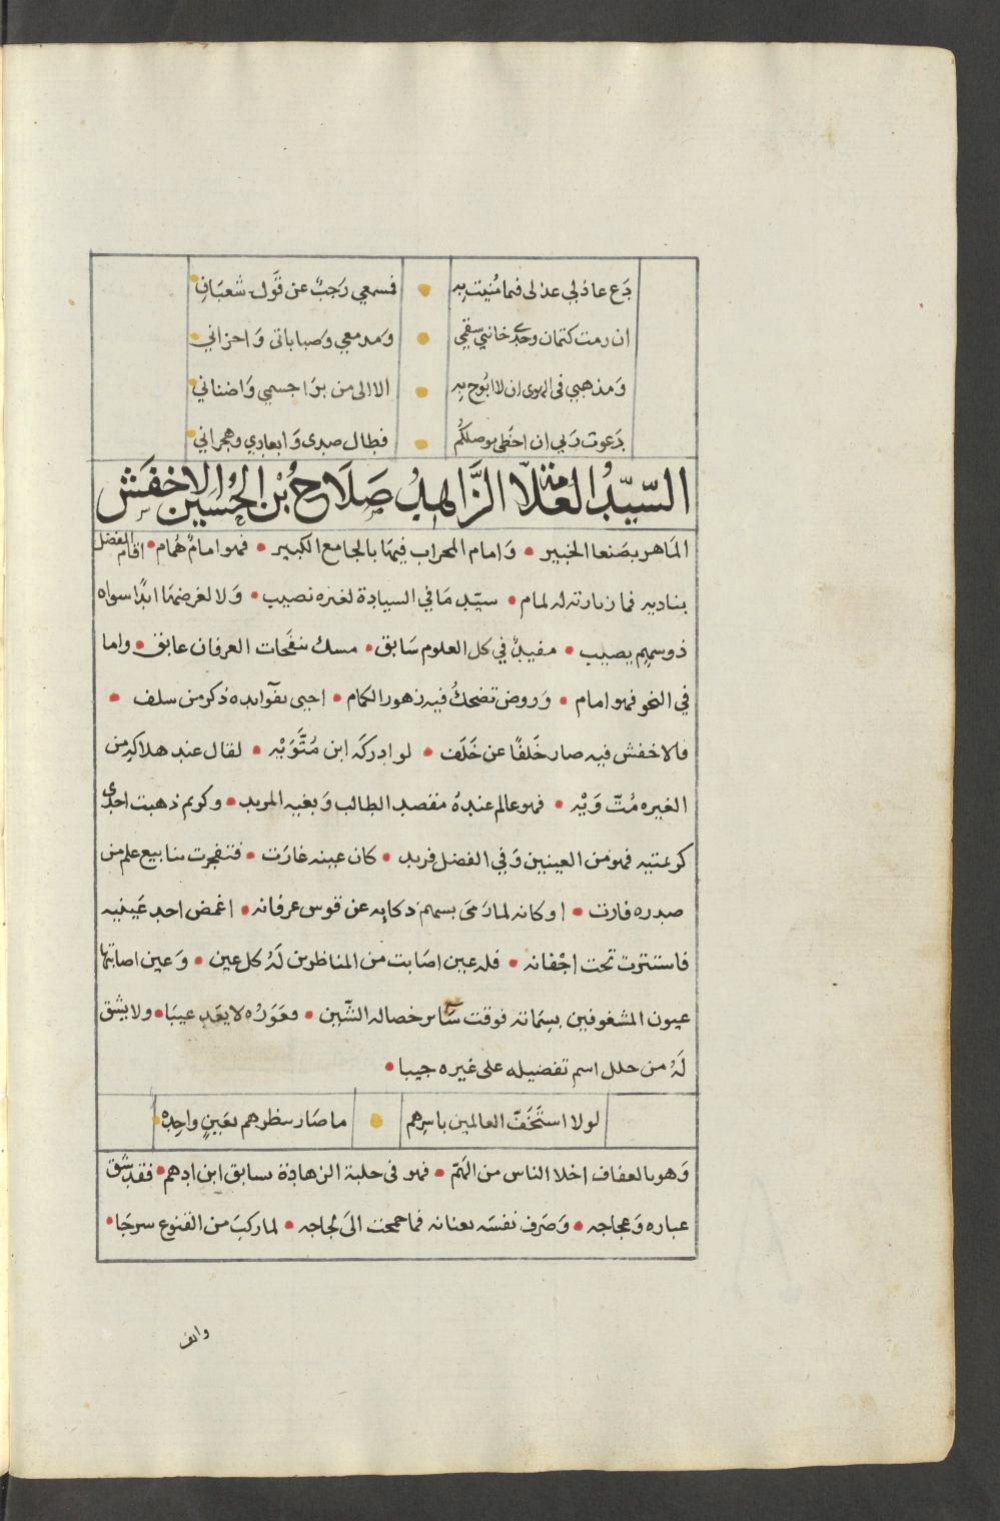 دَع عاذلي عذلى فما مُنيت به • فسمعي رَجبٌ عن قَول شعبَان
ان رمت كتمان وجدي خانني سقمي • ومدمعي وصباباتى وَاحزاني
وَمذهبي فى الهوى ان لا ابُوح به • الا الى من برَا جسمي وَاضناني
دَعوت رَبي ان احظى بوصلكُم • فطال صدى وَابعادي وهجراني
السّيّدُ العلّامة الزَّاهدُ صَلَاحُ بْنُ الحُسَين الاخفَش
المَاهر بصَنعا الخبير • وَامام المحراب فيهَا بالجامع الكبير • فهو امامٌ هُمام • اقام الفضل
بناديه فما زيارته له لمام • سيّد مَا في السيادة لغيره نصيب • وَلا لغرضهَا ابدًا سواه
ذو سهم يصيب • مفيدٌ في كل العلوم سَابق • مسك نفحَات العرفان عابق • واما
في النحو فهو امام • وَروض تضحكُ فيه زهور الكمام • احيى بفَوايده ذكر من سلف •
فالاخفش فيه صار خَلفًا عن خَلَف • لو ادركَه ابن مُتَّوَيْه • لقال عند هلاكه من
الغيره مُتّ وَيْه • فهو عالم عندهُ مقصد الطالب وَبغيه المريد • وكريم ذهبت احدى
كريمتيه فهو من العينين وَفي الفضل فريد • كان عينه غارَت • فتفجرت ينابيع علم من
صدره فارت • او كانه لما رَمَى بسهم ذكايه عن قوس عرفانه • اغمض احد عَينيه
فاستترت تحت اجْفانه • فله عين اصَابت من المناظرين لَهُ كل عين • وَعين اصابتهَا
عيون المشغوفين بسِمَاته فوقت سَاير خصاله الشّين • وعَوَرُه لا يعَد عيبَا • ولا يشق
لَهُ من حلل اسم تفضيله على غيره جيبا •
لولا استَخَفّ العالمين باسرِهم • ما صَار ينظرهم بعَينٍ واحِده
وَهو بالعفاف اخلا الناس من الهَمّ • فهو فى حلبة الزهادة سابق ابن ادهم • فقد شق
غباره وَعجاجه • وَصَرف نفسَه بعنانه فما جمحت الىَ لجاجه • لما ركبَ من القنوع سرجَا •